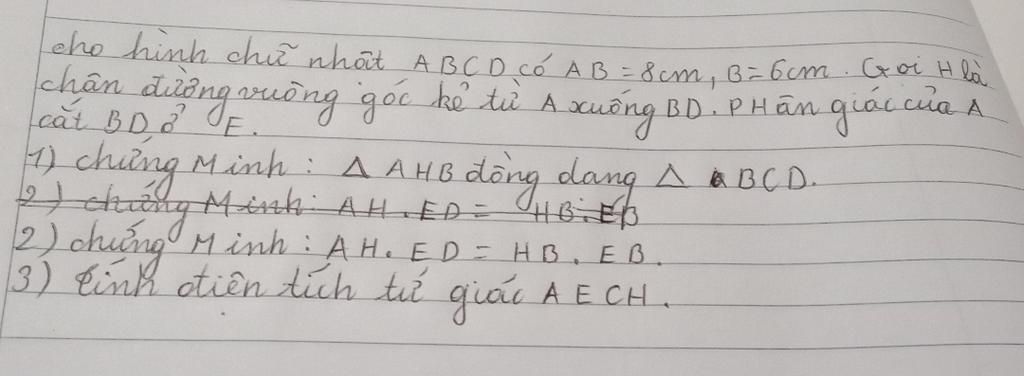 cho hình chữ nhất ABCD có AB = 8cm, B = 6cm. Gọi H là
chân đường vuông góc kẻ từ A xuống BD. PHân giác của A
cắt BD ở E.
1) chứng Minh : Δ AHB đồng dang Δ BCD.
2) chứng Minh: AH . ED = HB . EB
2) chứng Minh : AH . ED = HB . EB.
3) tính diên tích tứ giác AECH.